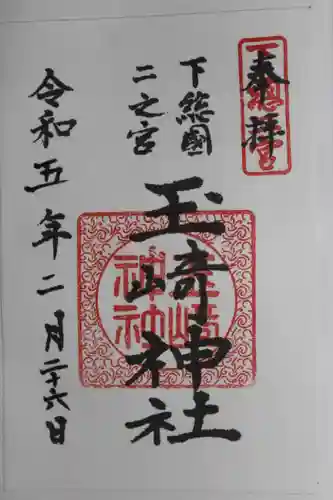 奉拝
下総國
二之宮
玉崎神社
令和五年二月二十六日